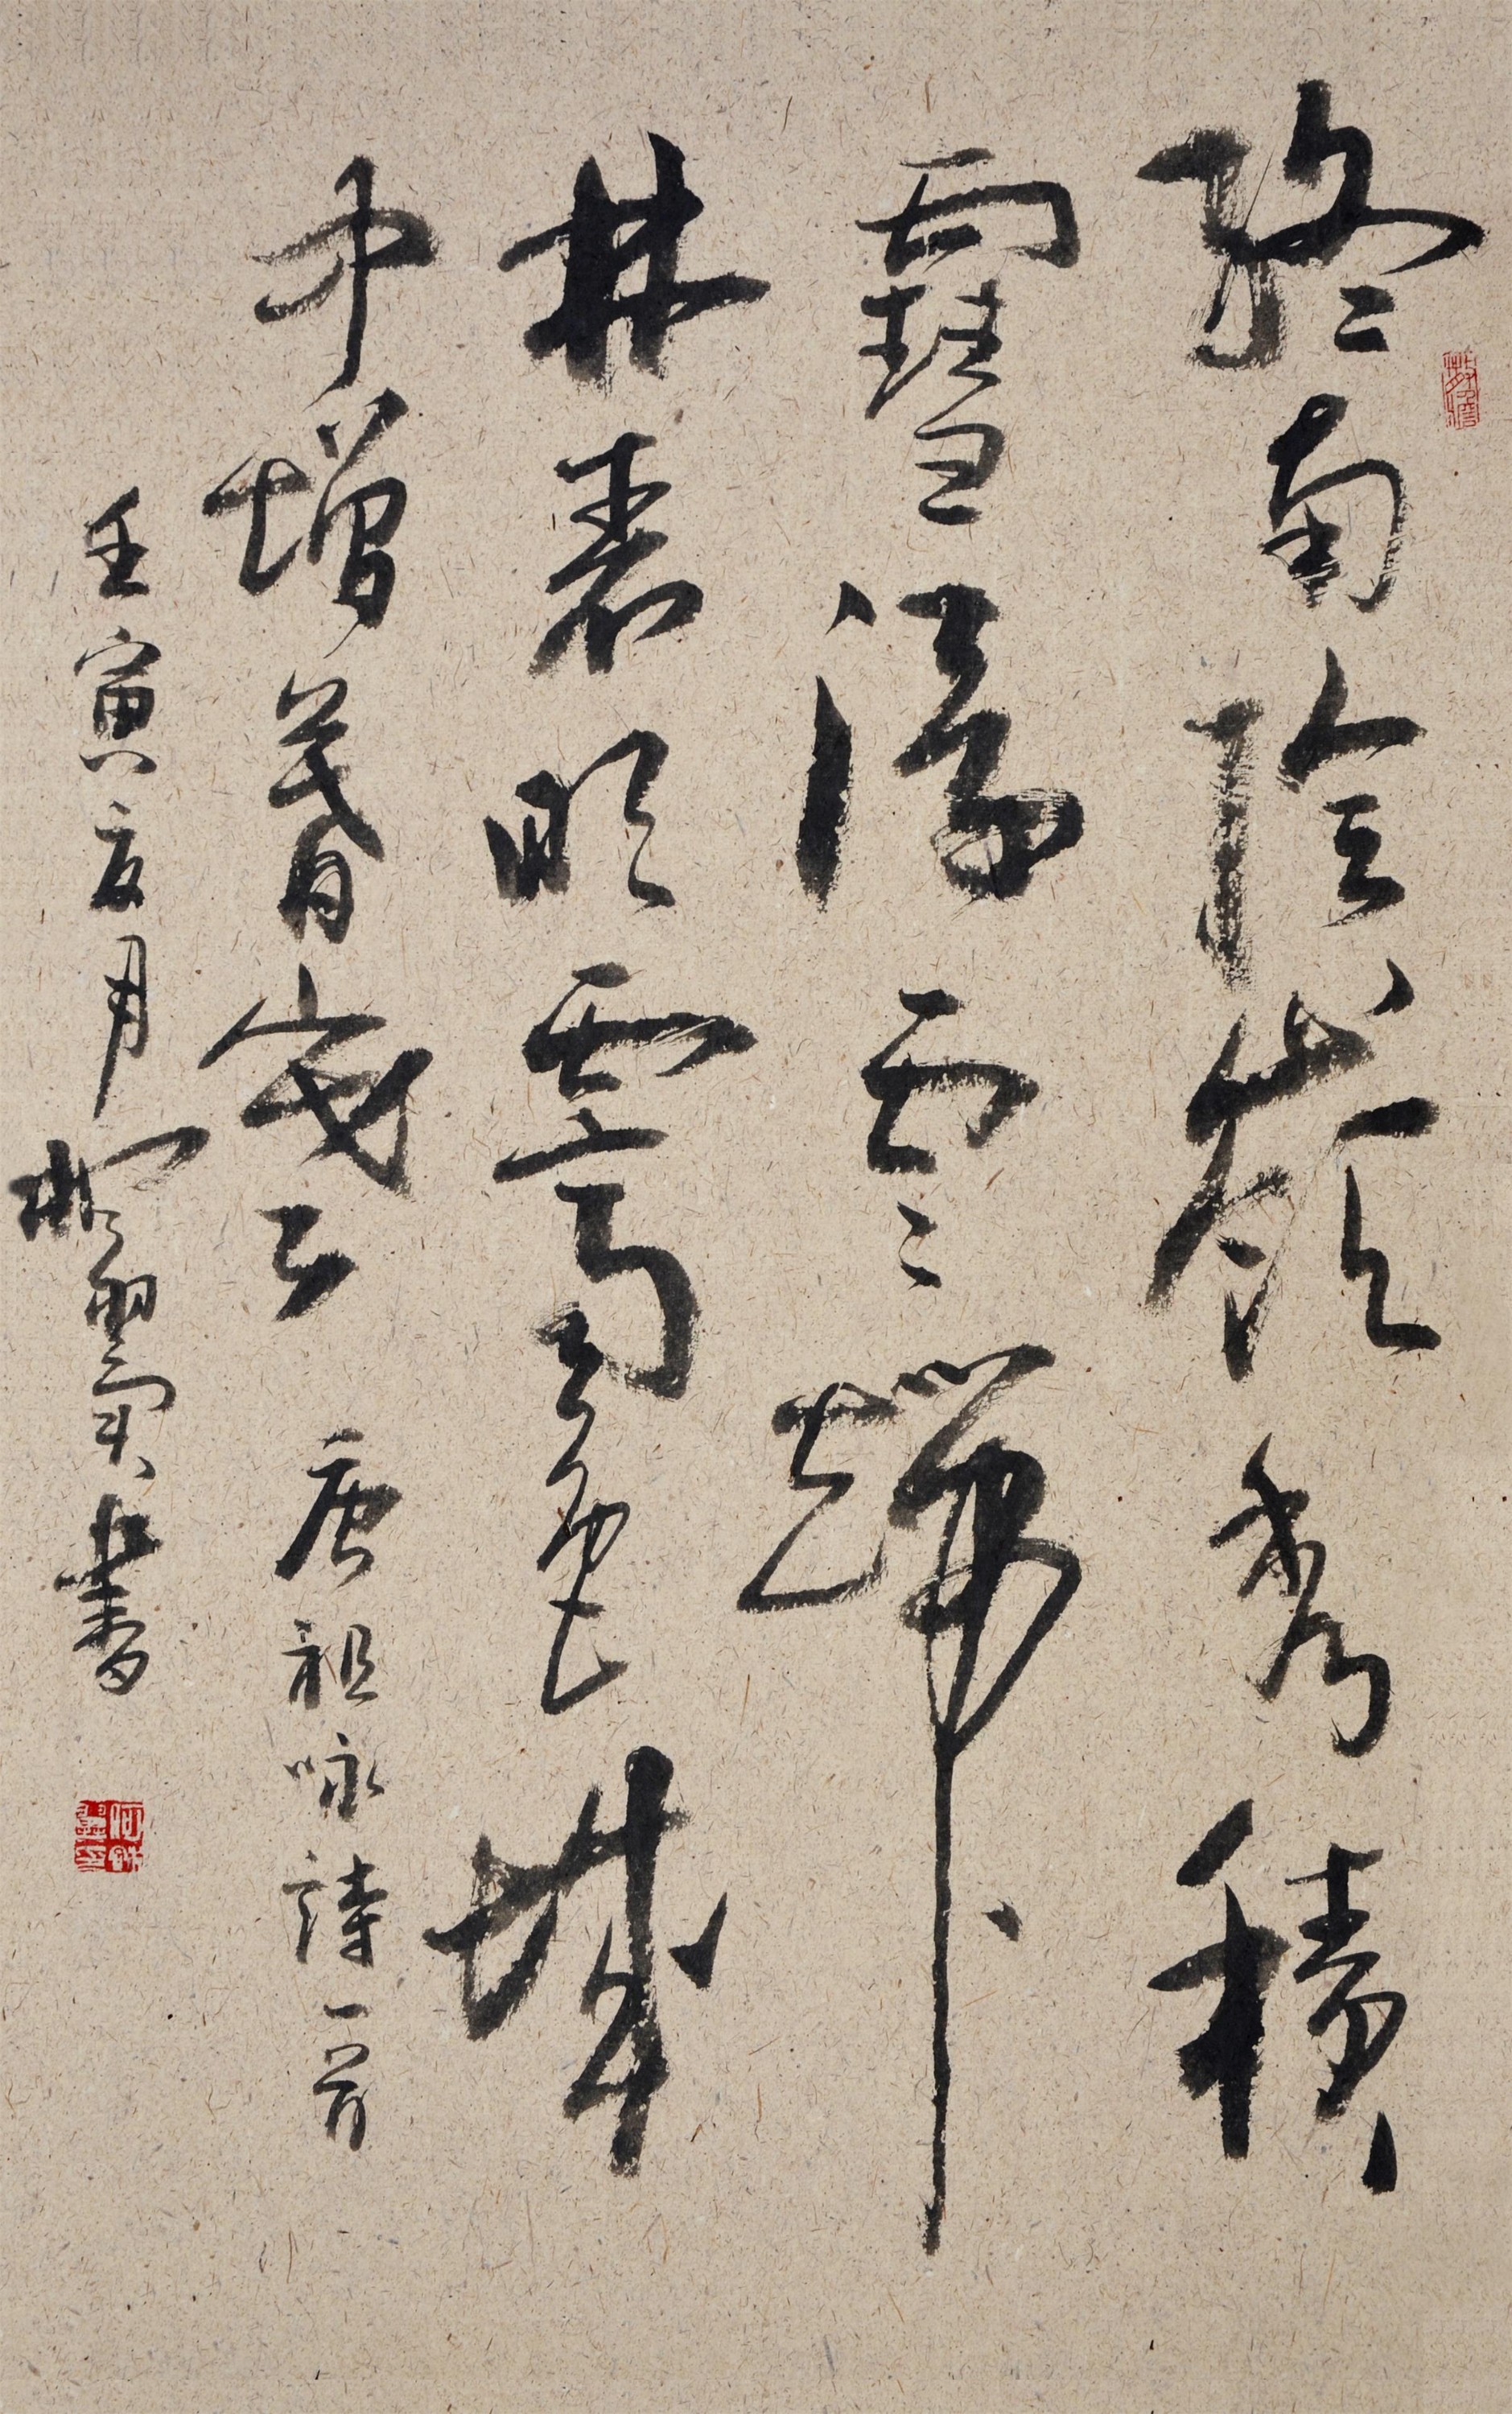 終南陰嶺秀積
雪浮雲端
林表明霽色城
中增暮寒 唐祖咏詩一首
壬寅夏月 書